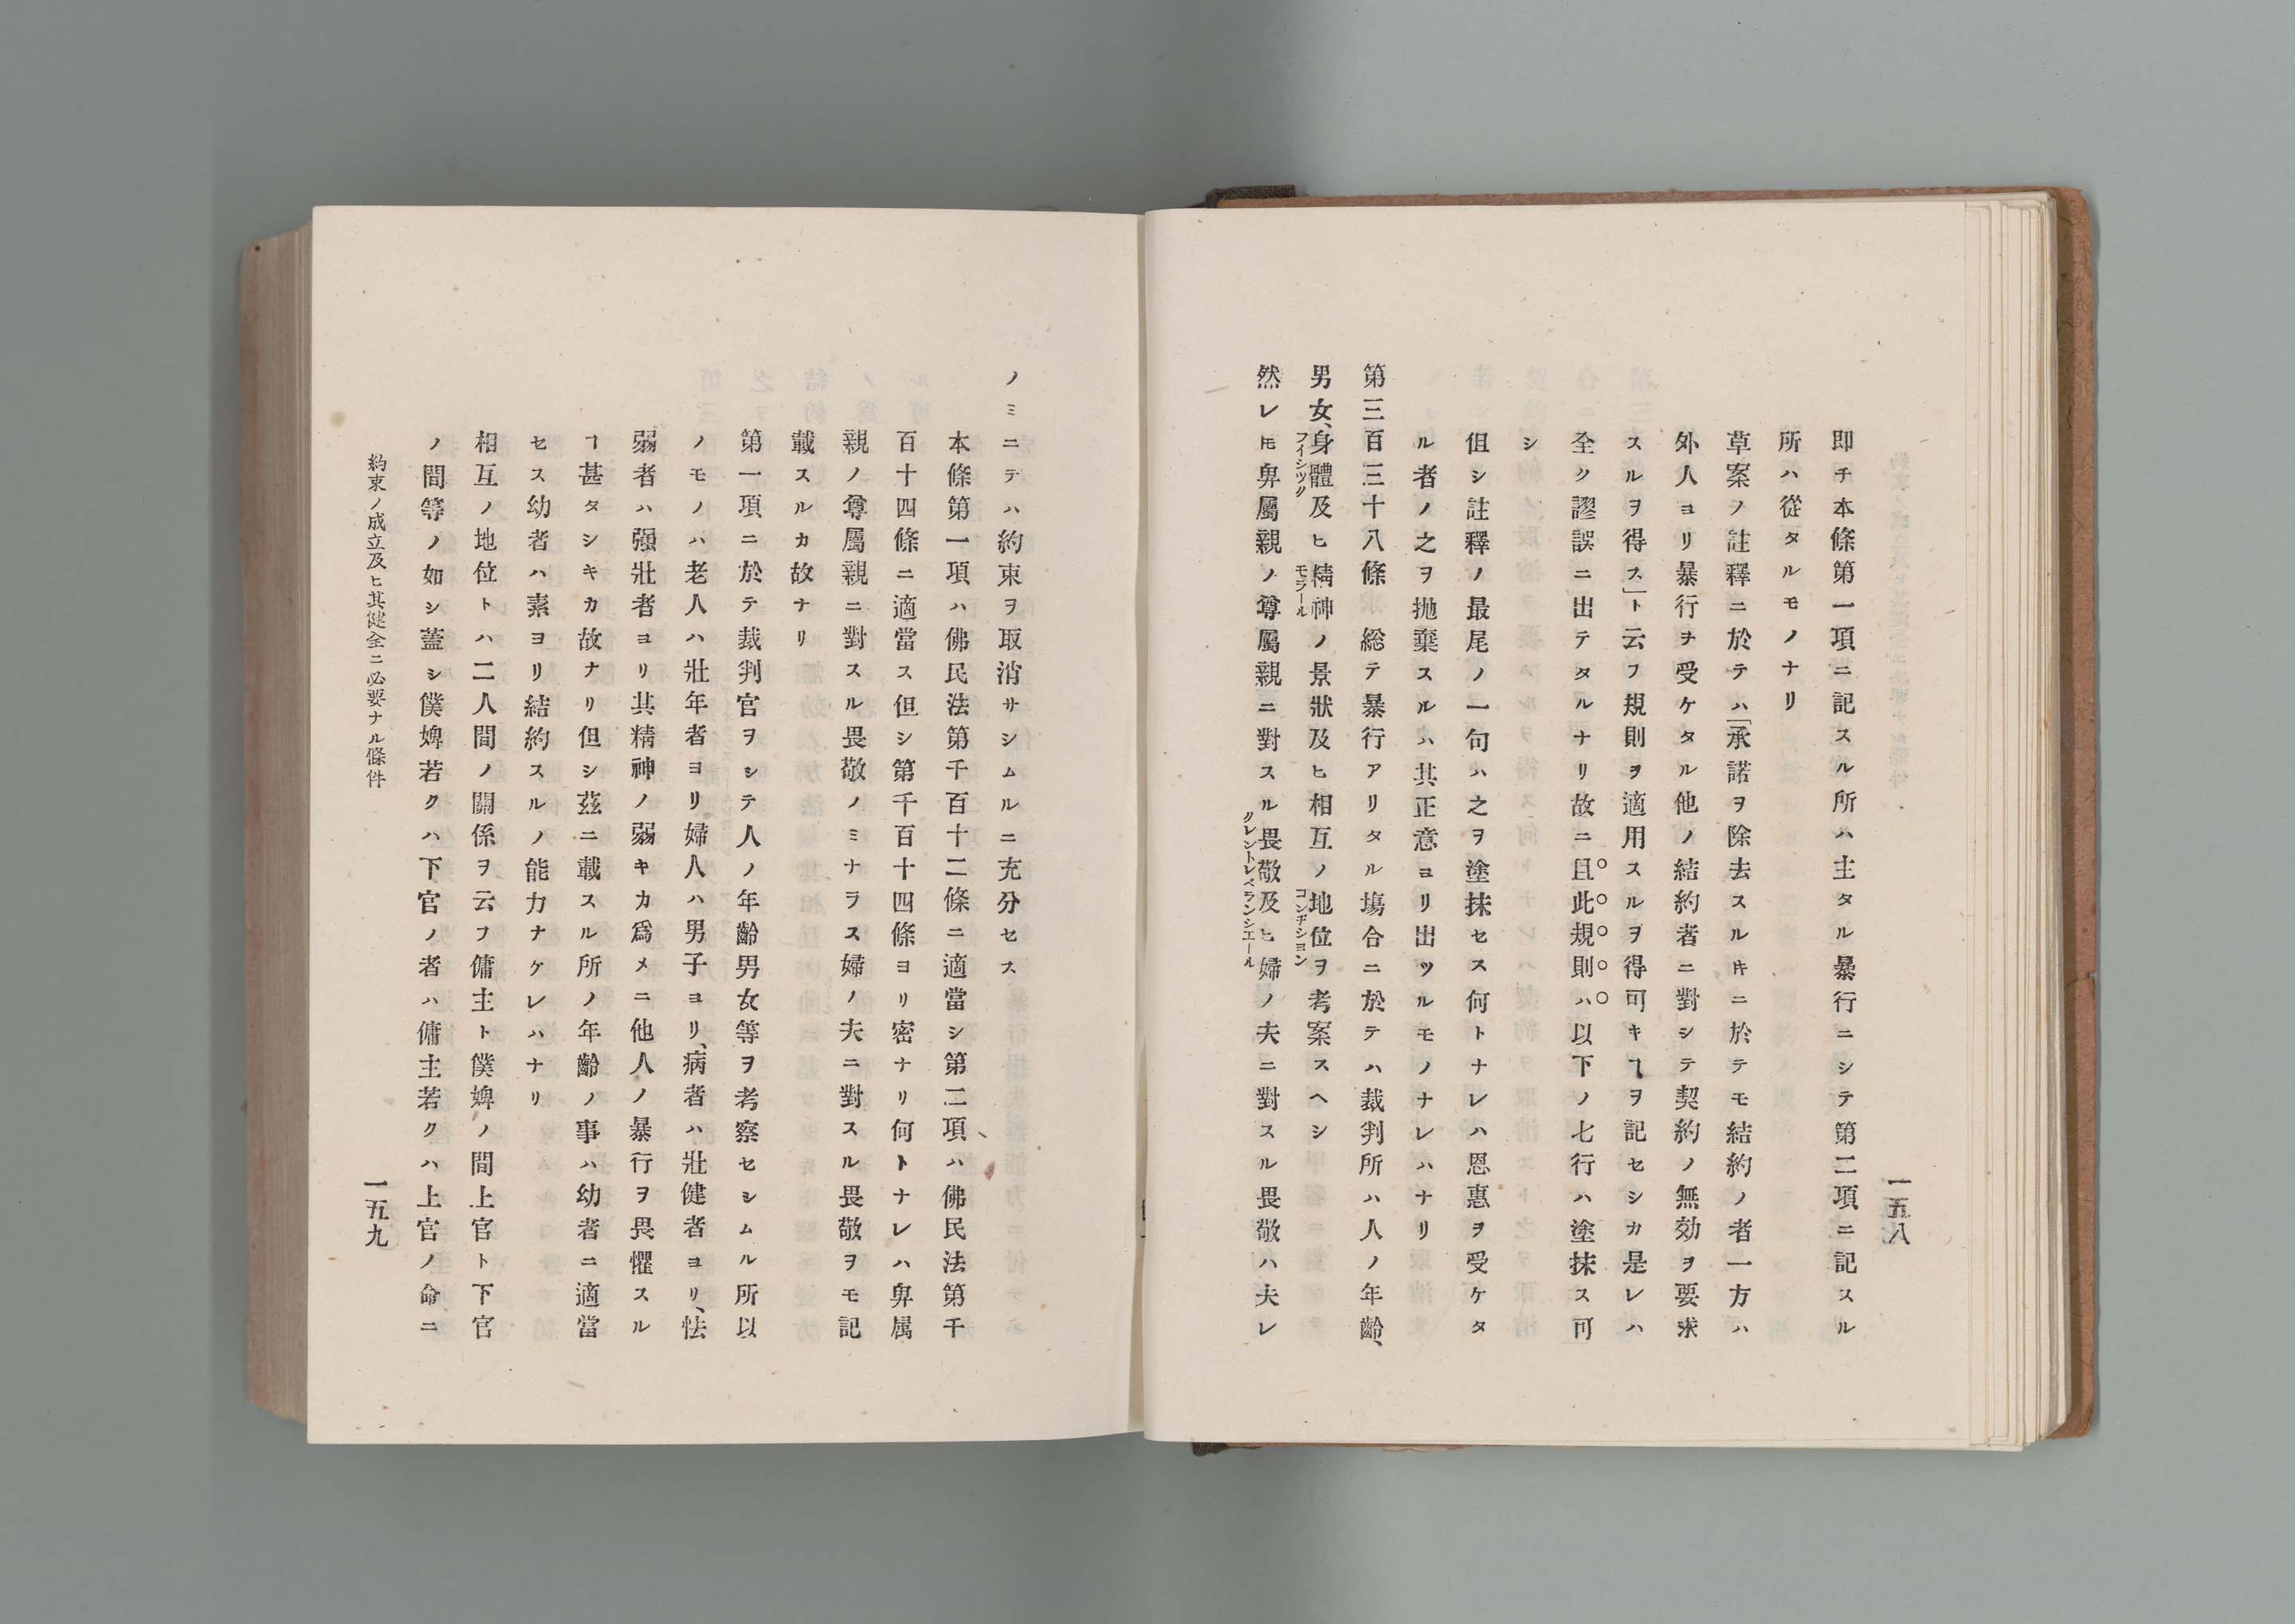 一五八
即チ本條第一項ニ記スル所ハ主タル暴行ニシテ第二項ニ記スル
所ハ從タルモノナリ
草案ノ註釋ニ於テハ「承諾ヲ除去スルキニ於テモ結約ノ者一方ハ
外人ヨリ暴行ヲ受ケタル他ノ結約者ニ對シテ契約ノ無効ヲ要求
スルヲ得ス」ト云フ規則ヲ適用スルヲ得可キヿヲ記セシカ是レハ
全ク謬誤ニ出テタルナリ故ニ且此規則ハ以下ノ七行ハ塗抹ス可
シ
但シ註釋ノ最尾ノ一句ハ之ヲ塗抹セス何トナレハ恩惠ヲ受ケタ
ル者ノ之ヲ抛棄スルハ其正意ヨリ出ツルモノナレハナリ
第三百三十八條 総テ暴行アリタル塲合ニ於テハ裁判所ハ人ノ年齡、
男女、身體及ヒ精神ノ景狀及ヒ相互ノ地位ヲ考案スヘシ
フイシツク モラール コンヂシヨン
然レ𪜈卑屬親ノ尊屬親ニ對スル畏敬及ヒ婦ノ夫ニ對スル畏敬ハ夫レ
クレントレベランシエール
ノミニテハ約束ヲ取消サシムルニ充分セス
本條第一項ハ佛民法第千百十二條ニ適當シ第二項ハ佛民法第千
百十四條ニ適當ス但シ第千百十四條ヨリ密ナリ何トナレハ卑属
親ノ尊屬親ニ對スル畏敬ノミナラス婦ノ夫ニ對スル畏敬ヲモ記
載スルカ故ナリ
第一項ニ於テ裁判官ヲシテ人ノ年齡男女等ヲ考察セシムル所以
ノモノハ老人ハ壯年者ヨリ婦人ハ男子ヨリ、病者ハ壯健者ヨリ、怯
弱者ハ强壯者ヨリ其精神ノ弱キカ爲メニ他人ノ暴行ヲ畏懼スル
ヿ甚タシキカ故ナリ但シ茲ニ載スル所ノ年齡ノ事ハ幼者ニ適當
セス幼者ハ素ヨリ結約スルノ能力ナケレハナリ
相互ノ地位トハ二人間ノ關係ヲ云フ傭主ト僕婢ノ間上官ト下官
ノ間等ノ如シ蓋シ僕婢若クハ下官ノ者ハ傭主若クハ上官ノ命ニ
約束ノ成立及ヒ其健全ニ必要ナル條件
一五九